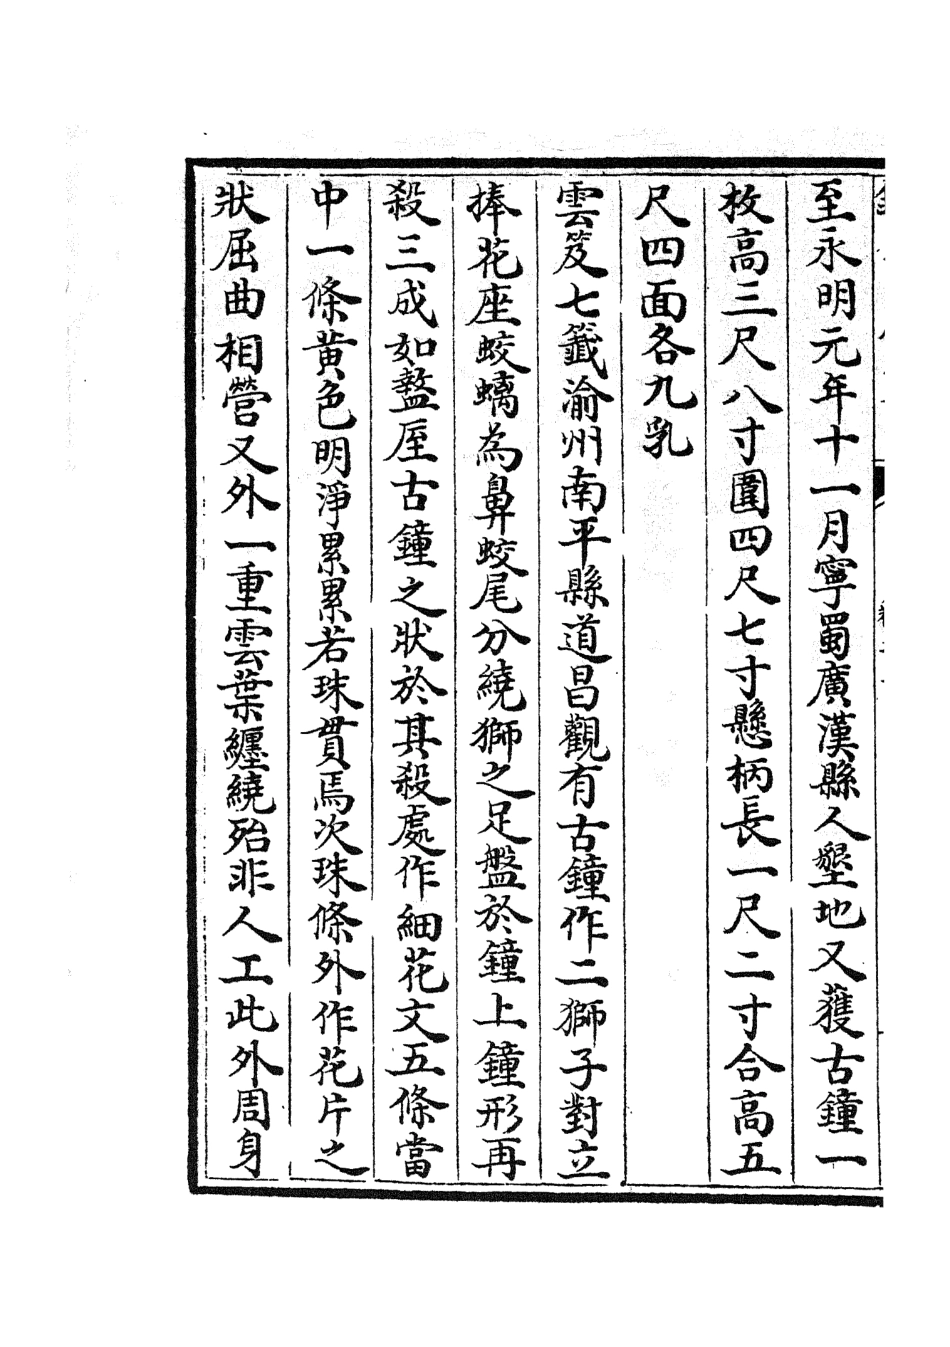 至永明元年十一月寧蜀廣漢縣人墾地又獲古鐘一
枚高三尺八寸圍四尺七寸懸柄長一尺二寸合高五
尺四面各九乳
雲笈七籤渝州南平縣道昌觀有古鐘作二獅子對立
捧花座蛟螭為鼻蛟尾分繞獅之足盤於鐘上鐘形再
殺三成如盩厔古鐘之狀於其殺處作細花文五條當
中一條黃色明淨累累若珠貫焉次珠條外作花片之
狀屈曲相營又外一重雲葉纒繞殆非人工此外周身